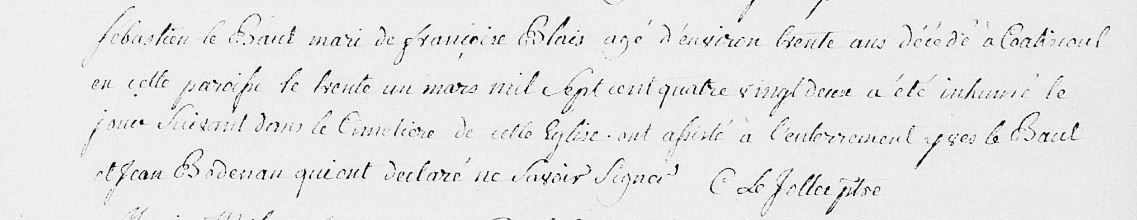 sebastien le Baut mari de françoise Blais agé d'environ trente ans décédé à Coatiscoul
en cette paroisse le trente un mars mil sept cent quatre vingt deux a été inhumé le
jour suivant dans le Cimetiere de cette Eglise. ont assisté à l'enterrement yves le Baut
et Jean Bodenan qui ont declaré ne savoir signer C Le Jollec ptre